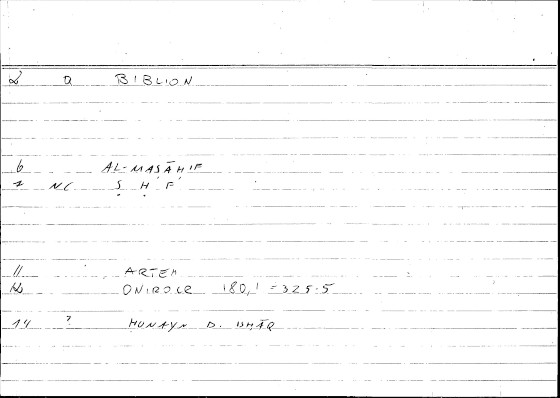 2 Q BIBLION
6 AL-MAṢĀḤIF
7 NC Ṣ Ḥ F
11 ARTEM
12 ONIROCR 180,1 = 325.5
14 ? HUNAYN B. ISHĀQ